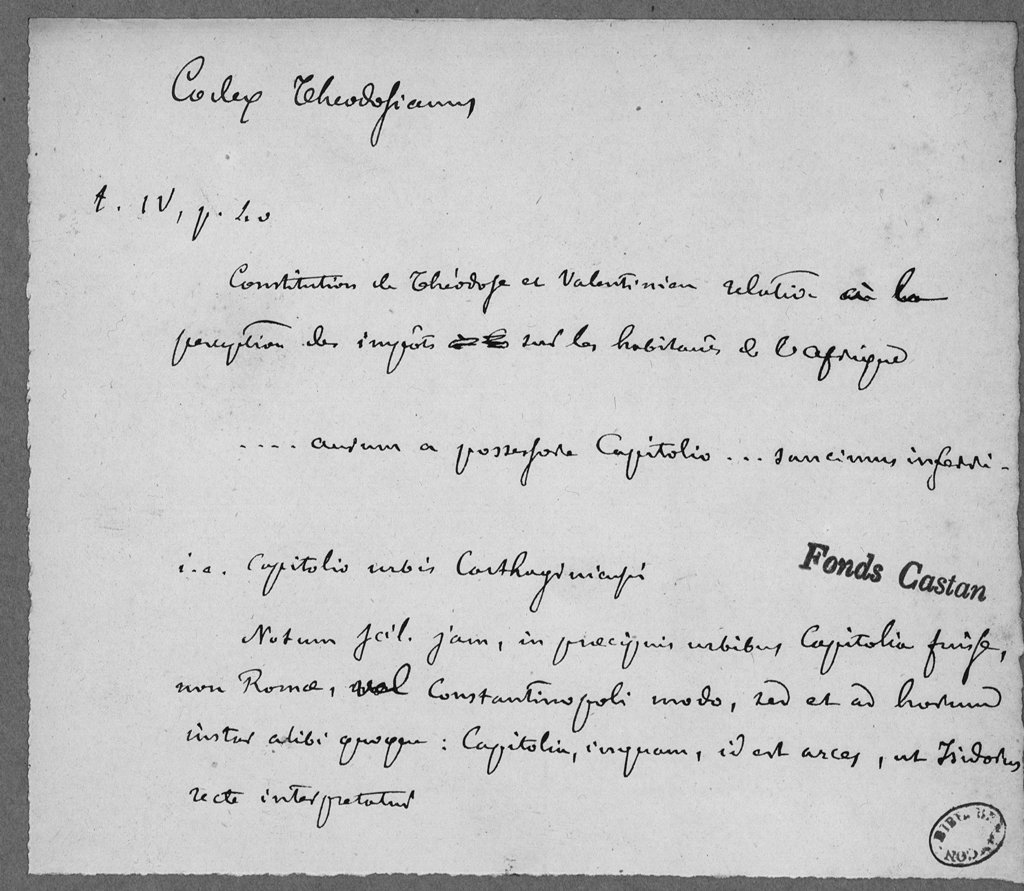 Codex Theodosianus
t. IV, p. 40
Constitution de Théodose et Valentinien relative à la
perception des impôts sur les habitants de l'Afrique
.... aurum a possessore Capitolio ... sancimus inferri.
i. e. Capitolio urbis Carthaginiensis
Notum scil. jam, in præcipuis urbibus Capitolia fuisse,
non Romæ, vel Constantinopoli modo, sed et ad horum
instar alibi quoque : Capitolia, inquam, id est arces, ut Isidorus
recte interpretatur
Fonds Castan